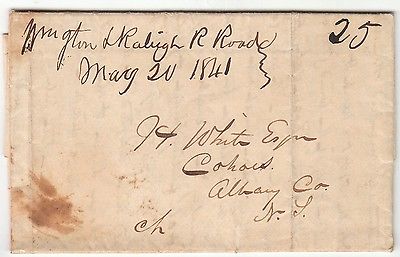 Wmgton & Raleigh R Road
25
May 20 1841
H. White Esqr
Cohoes.
Albany Co.
N. Y.
ch